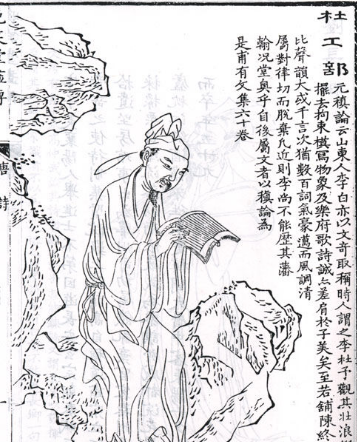 杜工部
元稹論云山東人李白亦以文奇取稱時人謂之李杜予觀其壯浪
擺去拘束模寫物象及樂府歌詩誠亦差肩於子美矣至若鋪陳終
比聲韻大或千言次猶數百詞氣豪邁而風調清
屬對律切而脫棄凡近則李尚不能歷其藩
翰况堂奥乎自後屬文者以稹論為
是甫有文集六十卷